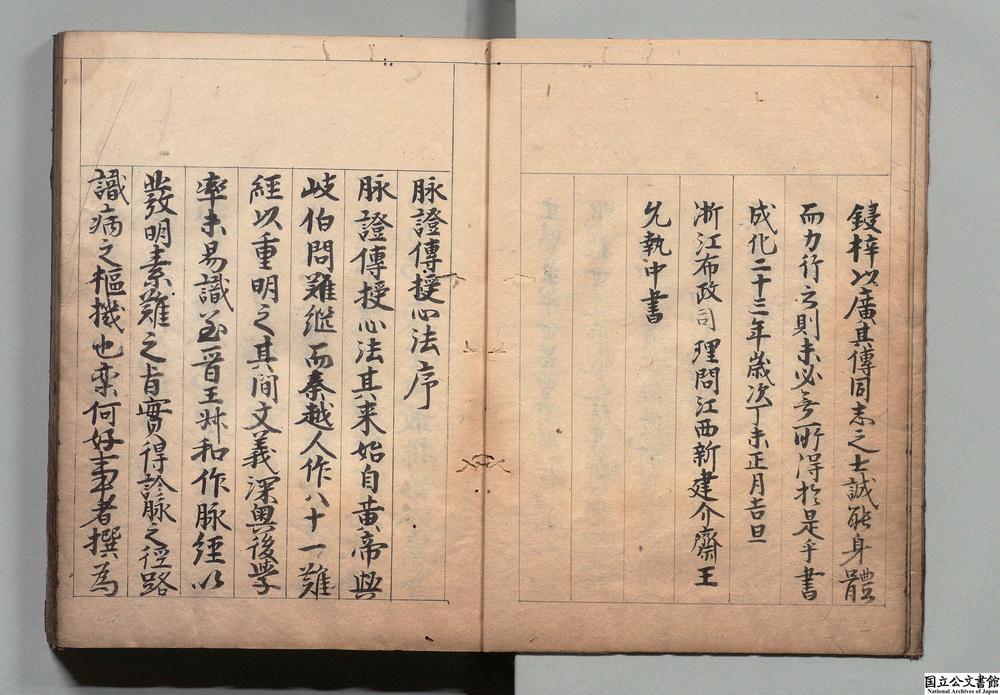 鋟梓以廣其傳同志之士誠能身體
而力行之則未必無所得於是乎書
成化二十三年歳次丁未正月吉旦
浙江布政司理問江西新建介齋王
允執中書
脉證傳授心法序
脉證傳授心法其来始自黄帝與
岐伯問難継而秦越人作八十一難
經以重明之其間文義深奥後学
率未易識至晉王叔和作脉經以
發明素難之旨實得診脉之徑路
識病之樞機也柰何好事者撰為
国立公文書館
National Archives of Japan